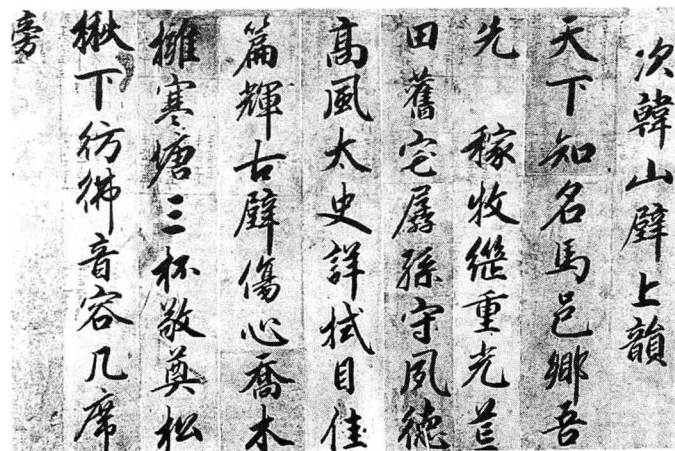 次韓山壁上韻
天下知名馬邑鄉吾
先 稼牧繼重光荒
田舊宅孱孫守夙德
高風太史詳拭目佳
篇輝古壁傷心喬木
擁寒塘三杯敬奠松
楸下彷彿音容几席
旁